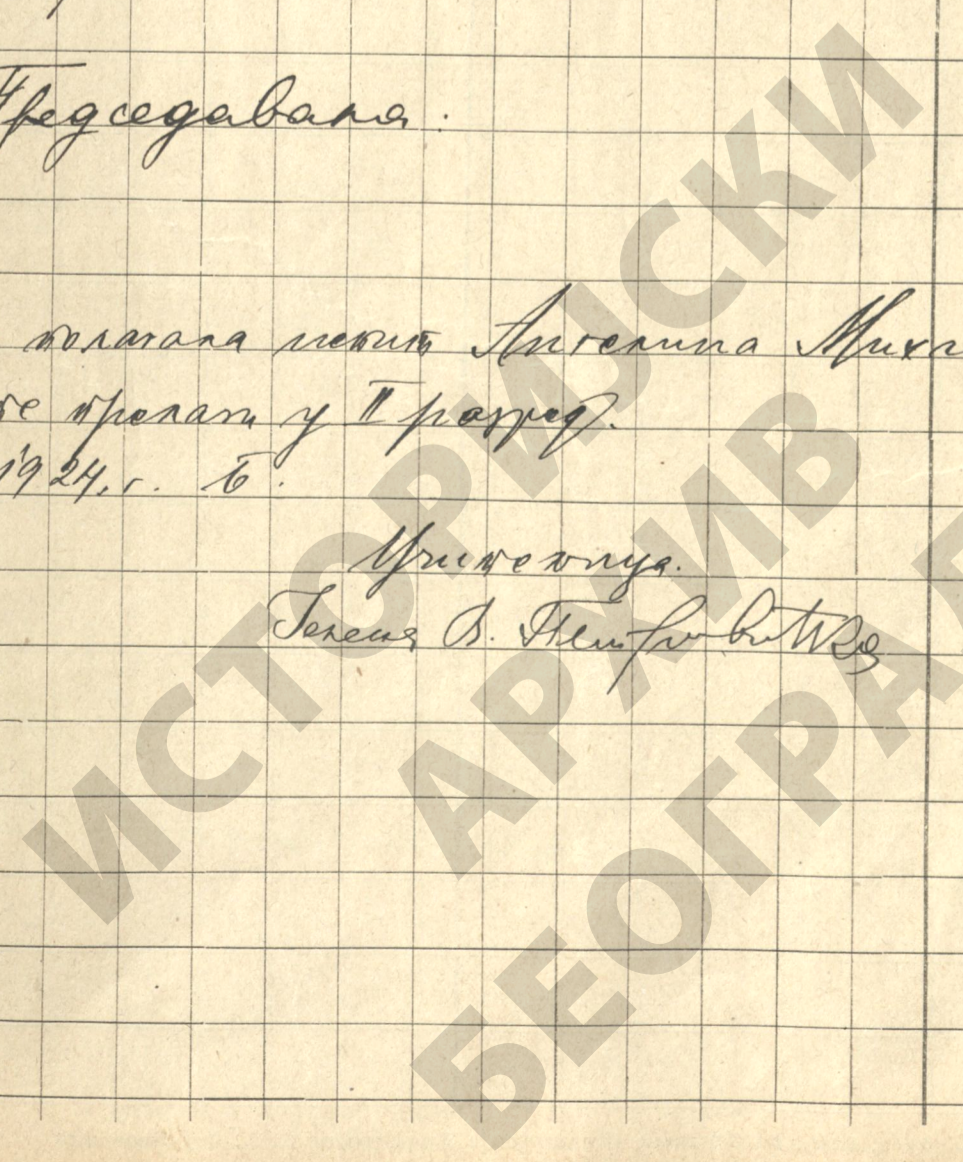 Председавала:
полагала испит Ангелина Миха
се прелази у II разред.
1924. г. Б.
Учитељица.
Јелена В. Петровићка
ИСТОРИЈСКИ
АРХИВ
БЕОГРА